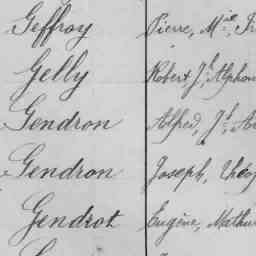 Geffroy Pierre, M.ie, Fr
Gelly Robert J.h Alphon
Gendron Alfred, J.h, Au
Gendron Joseph, Théop
Gendrot Eugène, Mathur